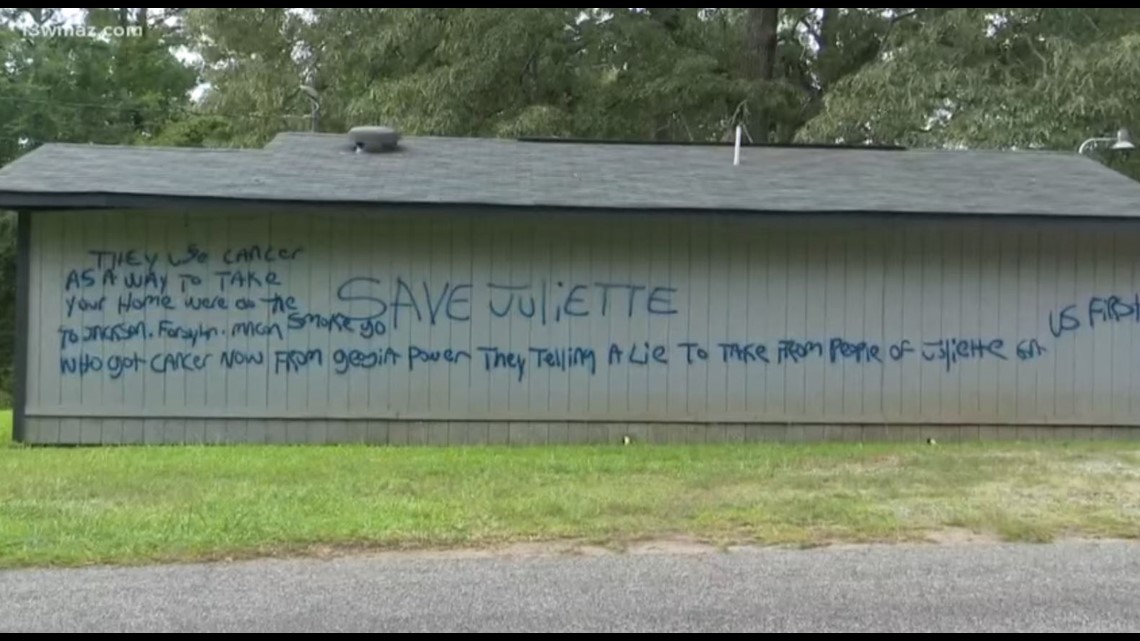 13wmaz.com
THEY USe CANCer
AS A WAY To TAKE
Your Home were do the
Smoke go
To JACKSON. Forsyth. MACON
SAVE JULiETTE
WHO got CANCer NOW From Power They Telling A Lie To TAKE From People OF Juliette GA
US FIRST